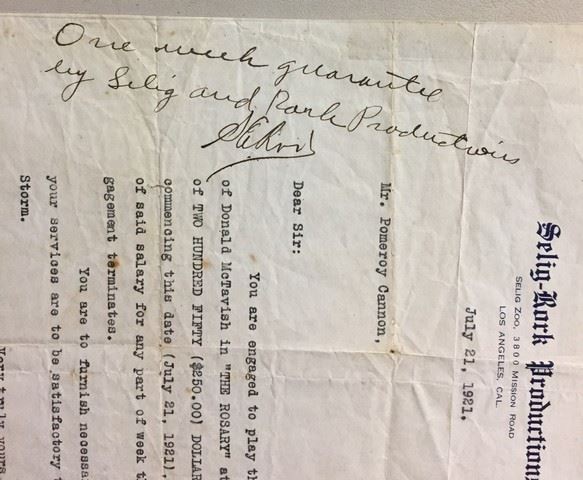 Selig-Rork Productions
SELIG ZOO, 3800 MISSION ROAD
LOS ANGELES, CAL.
July 21, 1921.
Mr. Pomeroy Cannon,
Dear Sir:
You are engaged to play th
of Donald McTavish in "THE ROSARY" at
of TWO HUNDRED FIFTY ($250.00) DOLLAR
commencing this date (July 21, 1921).
of said salary for any part of week t
gagement terminates.
You are to furnish necessa
your services are to be satisfactory t
Storm.
Very truly yours
One week guarantee
by Selig and Rork Productions